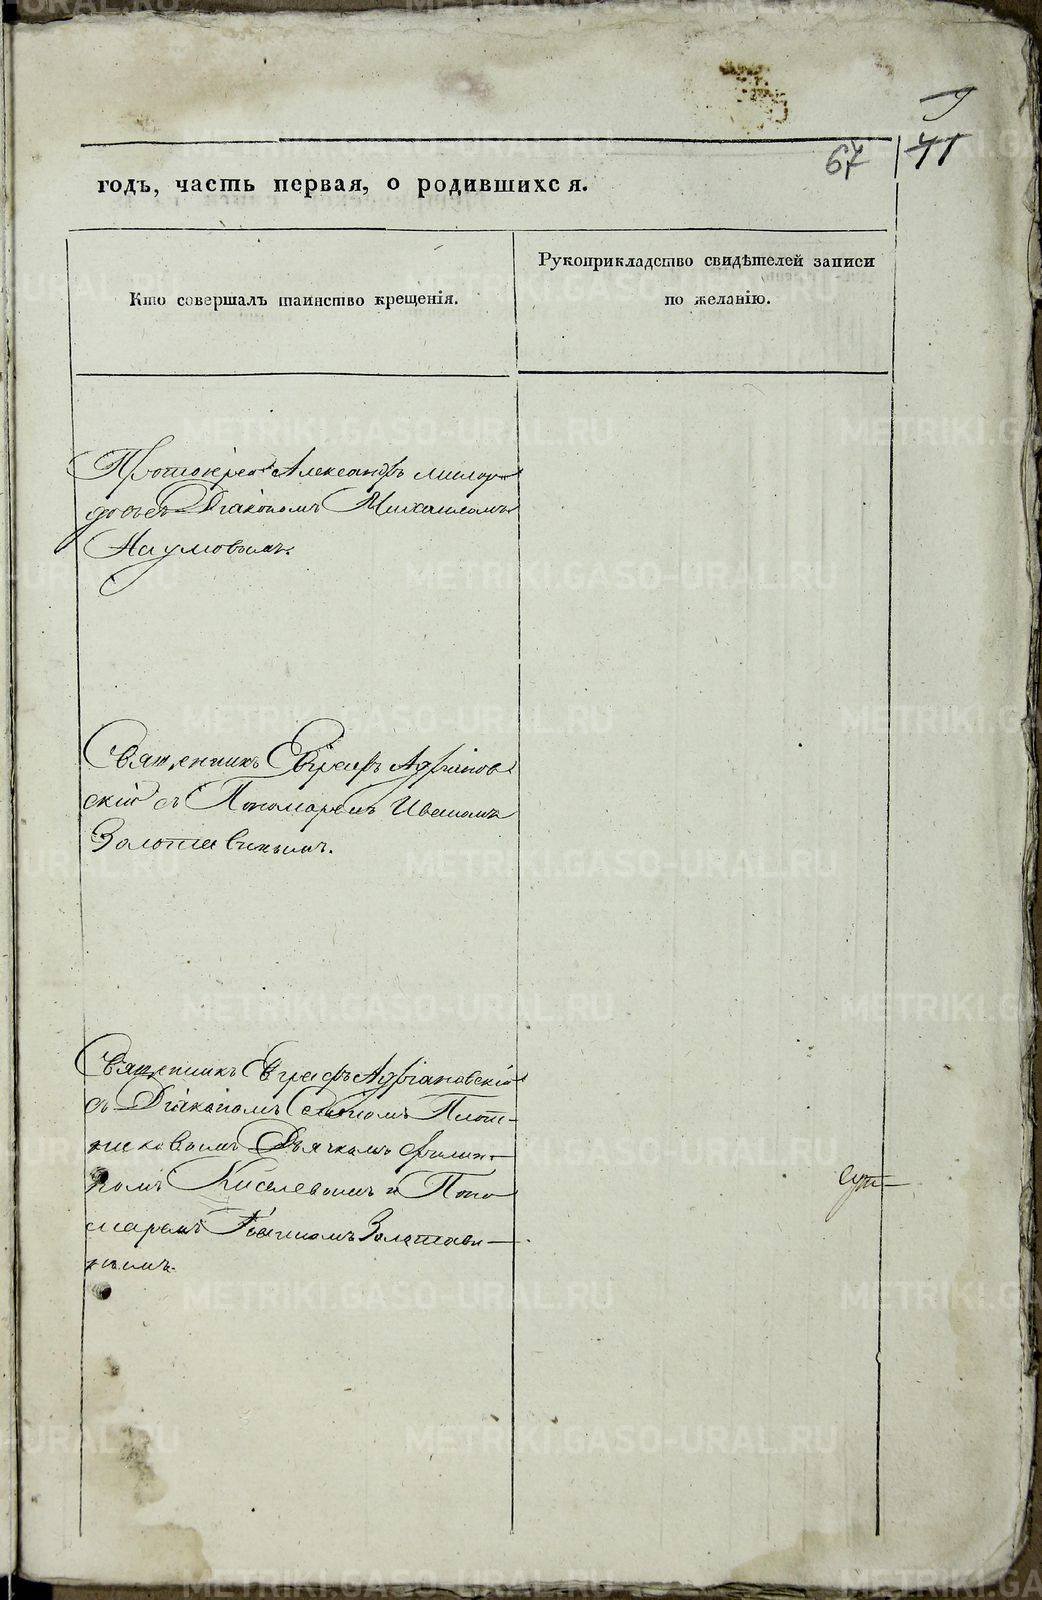 9
67 71
годъ, часть первая, о родившихся.
Кто совершалъ таинство крещенія.
Рукоприкладство свидѣтелей записи
по желанію.
Протоіерей Александръ Милор-
довъ съ Діакономъ Михаиломъ
Наумовымъ.
Священникъ Евграфъ Адріанов
скій съ Пономаремъ Иваномъ
Золотавинымъ.
Священникъ Евграфъ Адріановскій
съ Діакономъ Плот-
никовымъ Дьячкомъ Филип-
помъ Киселевымъ и Поно
маремъ Іоанномъ Золотави-
нымъ.
METRIKI.GASO-URAL.RU